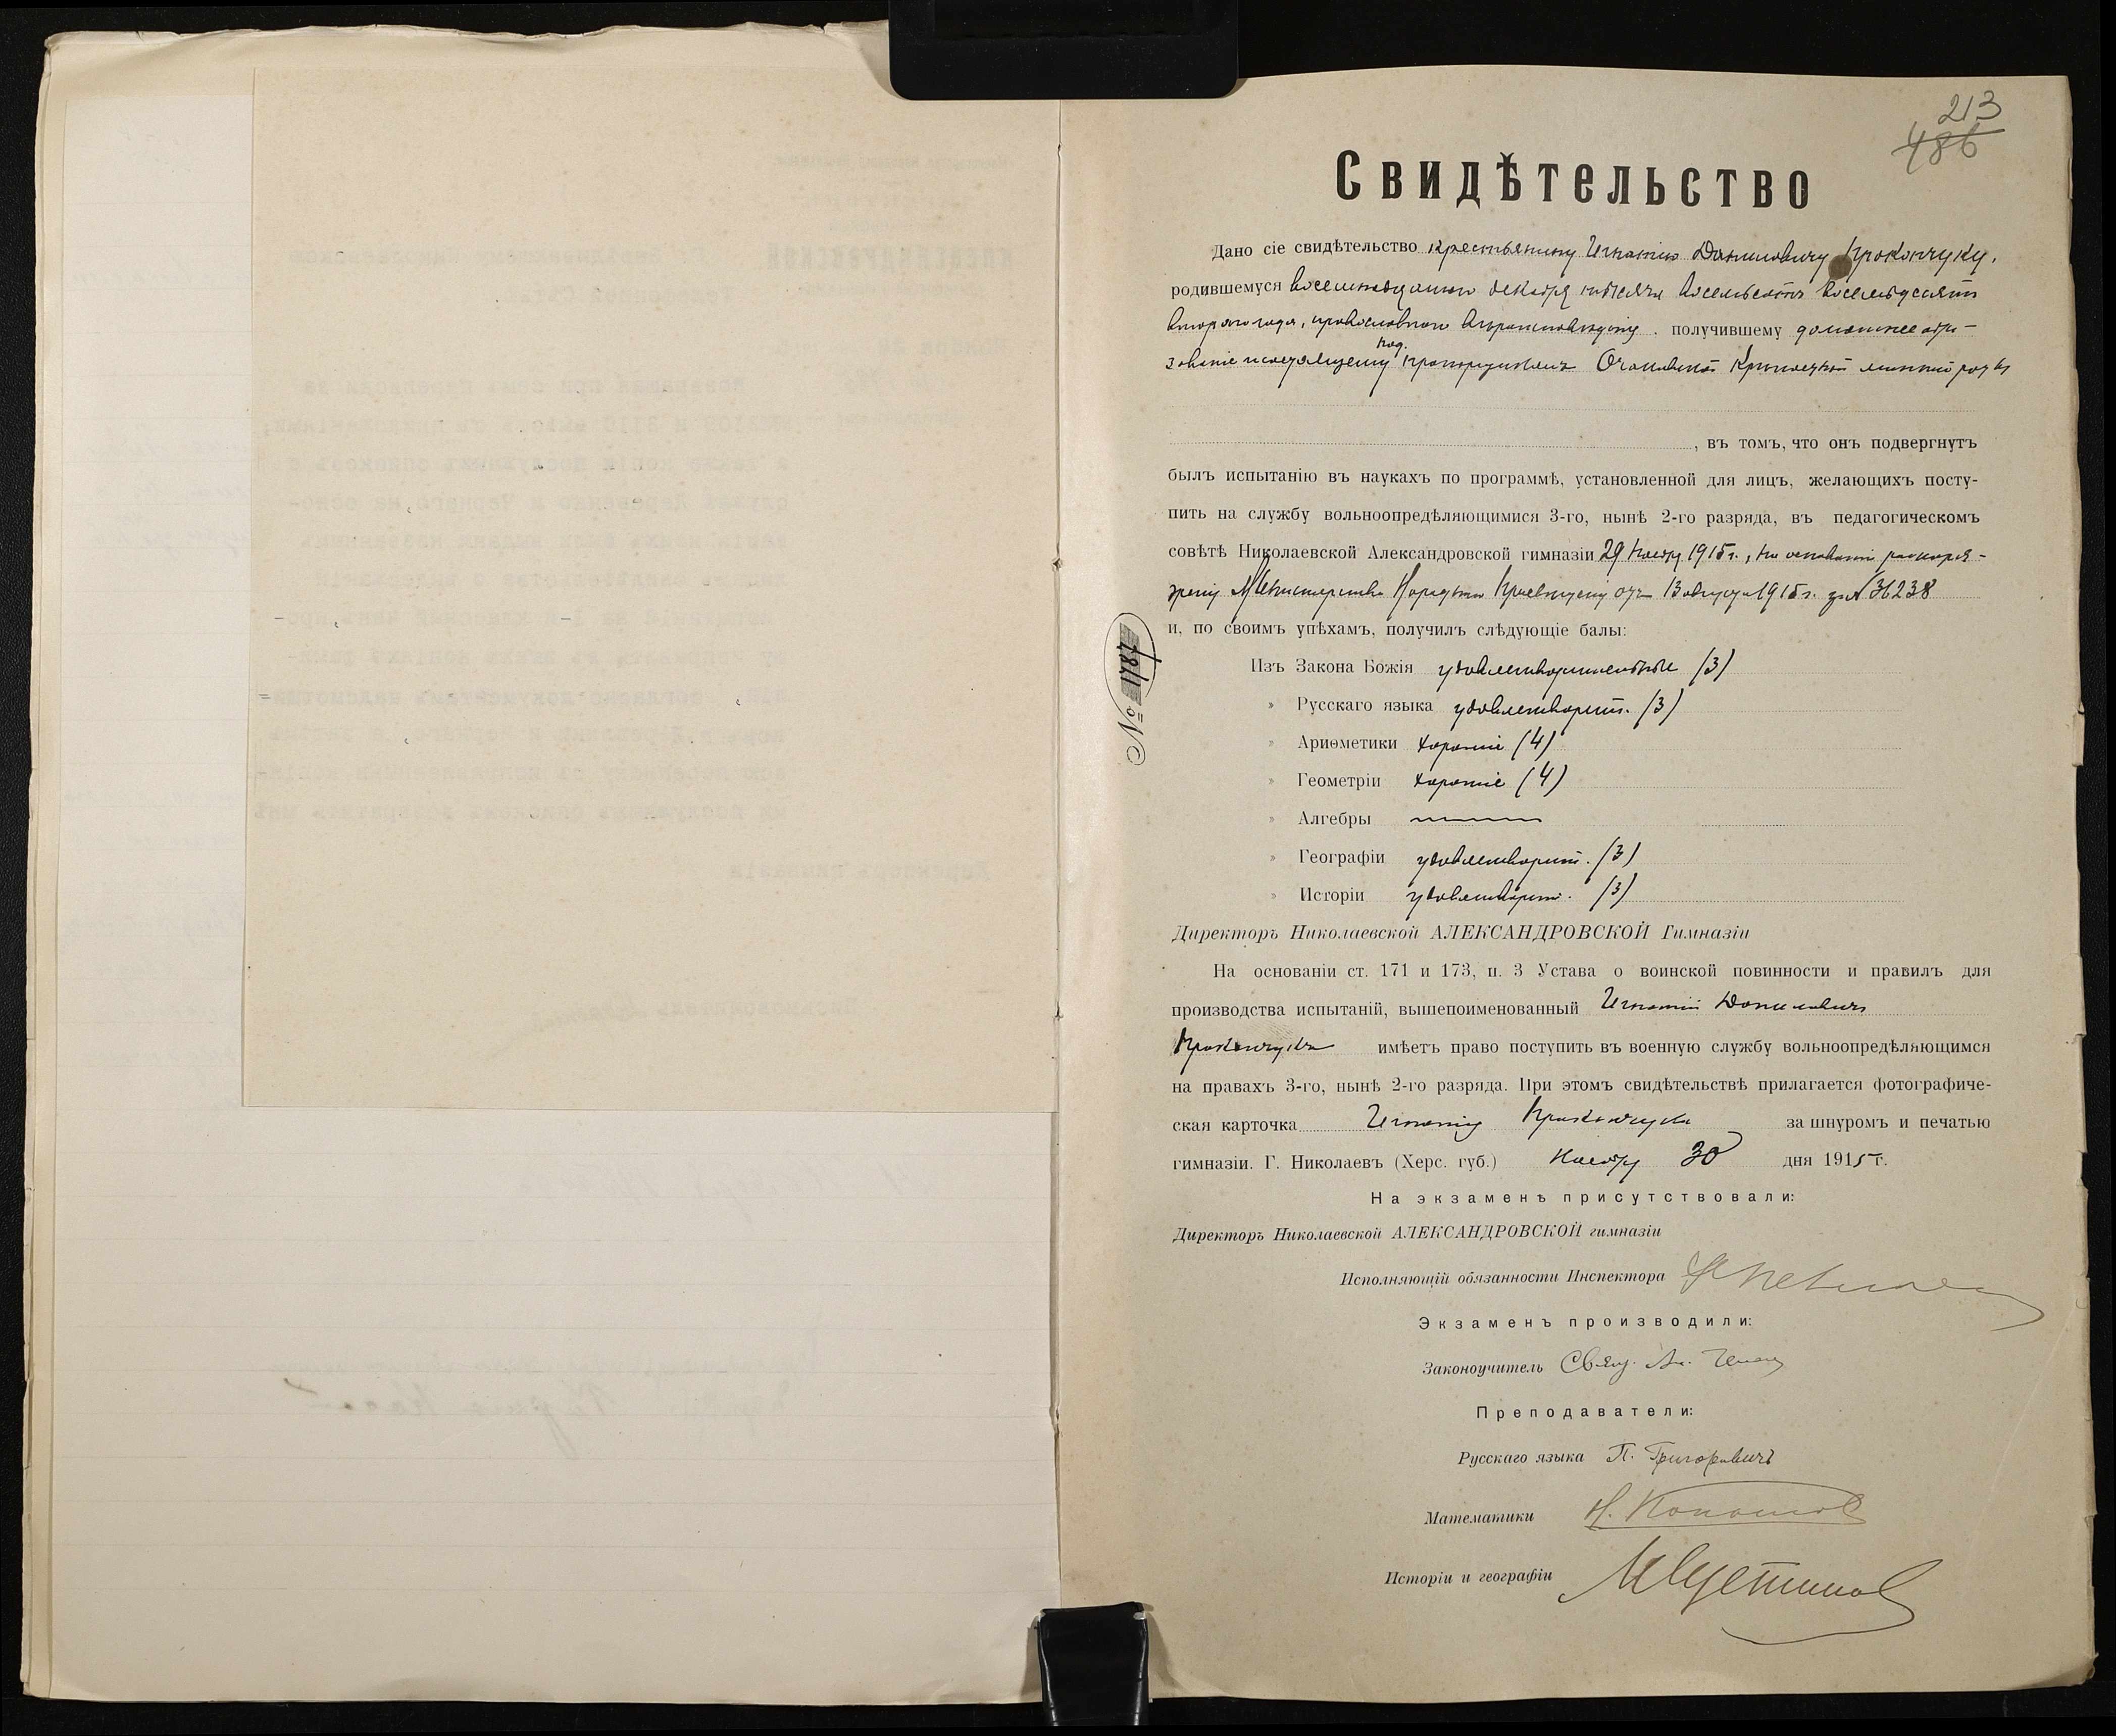 213
486
Свидѣтельство
Дано сіе свидѣтельство крестьянину Игнатію Даниловичу Прокопчуку,
родившемуся восемнадцатаго декабря тысяча восемьсотъ восемьдесятъ
второго года, православнаго вѣроисповѣданія, получившему домашнее обра-
зованіе и состоящему под. прапорщикомъ Очаковской Крѣпостной минной роты
, въ томъ, что онъ подвергнутъ
былъ испытанію въ наукахъ по программѣ, установленной для лицъ, желающихъ посту-
пить на службу вольноопредѣляющимися 3-го, нынѣ 2-го разряда, въ педагогическомъ
совѣтѣ Николаевской Александровской гимназіи 29 ноября 1915 г., на основаніи распоря-
женія Министерства Народнаго Просвѣщенія отъ 13 августа 1915 г. за № 36238
и, по своимъ упѣхамъ, получилъ слѣдующіе балы:
Изъ Закона Божія удовлетворительные (3)
» Русскаго языка удовлетворит. (3)
» Ариѳметики хорошіе (4)
» Геометріи хорошіе (4)
» Алгебры
» Географіи удовлетворит. (3)
» Исторіи удовлетворит. (3)
№ 1187
Директоръ Николаевской АЛЕКСАНДРОВСКОЙ Гимназіи
На основаніи ст. 171 и 173, п. 3 Устава о воинской повинности и правилъ для
производства испытаній, вышепоименованный Игнатій Даниловичъ
Прокопчукъ имѣетъ право поступить въ военную службу вольноопредѣляющимся
на правахъ 3-го, нынѣ 2-го разряда. При этомъ свидѣтельствѣ прилагается фотографиче-
ская карточка Игнатія Прокопчука за шнуромъ и печатью
гимназіи. Г. Николаевъ (Херс. губ.) Ноября 30 дня 1915 г.
На экзаменѣ присутствовали:
Директоръ Николаевской АЛЕКСАНДРОВСКОЙ гимназіи
Исполняющій обязанности Инспектора
Экзаменъ производили:
Законоучитель Свящ. Ал.
Преподаватели:
Русскаго языка П. Григоровичъ
Математики Н.
Исторіи и географіи